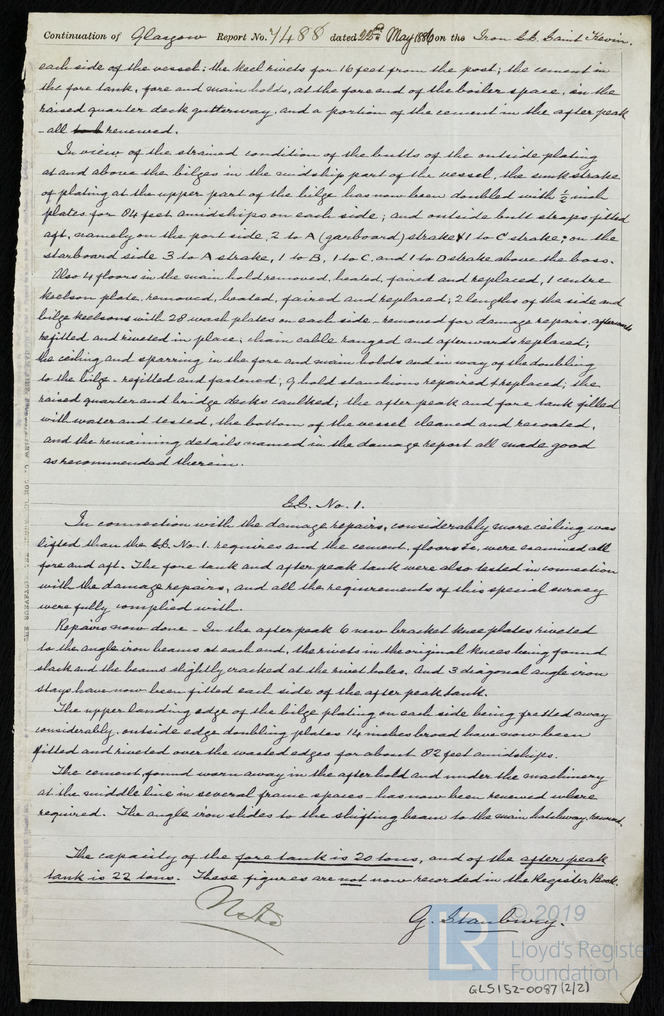 Continuation of Glasgow Report No. 7488 dated 22nd May 1886 on the Iron S.S. Saint Kevin.
each side of the vessel; the keel rivets for 16 feet from the post; the cement in
the fore tank, fore and main holds, at the fore end of the boiler space, in the
raised quarter deck gutterway, and a portion of the cement in the after peak
- all renewed.
In view of the strained condition of the butts of the outside plating
at and above the bilges in the midship part of the vessel, the sunk strake
of plating at the upper part of the bilge has now been doubled with ½ inch
plates for 84 feet amidships on each side; and outside butt straps fitted
aft, namely on the port side, 2 to A (garboard) strake & 1 to C strake; on the
starboard side 3 to A strake, 1 to B, 1 to C, and 1 to D strake above the boss.
Also 4 floors in the main hold removed, heated, faired and replaced, 1 centre
keelson plate, removed, heated, faired and replaced; 2 lengths of the side and
bilge keelsons with 28 wash plates on each side - removed for damage repairs, afterwards
refitted and riveted in place; chain cable ranged and afterwards replaced;
the ceiling and sparring in the fore and main holds and in way of the doubling
to the bilge - refitted and fastened, 9 hold stanchions repaired & replaced; the
raised quarter and bridge decks caulked; the after peak and fore tank filled
with water and tested, the bottom of the vessel cleaned and recoated,
and the remaining details named in the damage report all made good
as recommended therein.
S.S. No. 1.
In connection with the damage repairs, considerably more ceiling was
lifted than the S.S. No. 1. requires and the cement, floors &c, were examined all
fore and aft. The fore tank and after peak tank were also tested in connection
with the damage repairs, and all the requirements of this special survey
were fully complied with.
Repairs now done - In the after peak 6 new bracket knee plates riveted
to the angle iron beams at each end, the rivets in the original knees being found
slack and the beams slightly cracked at the rivet holes. And 3 diagonal angle iron
stays have now been fitted each side of the after peak tank.
The upper landing edge of the bilge plating on each side being fretted away
considerably, outside edge doubling plates 14 inches broad have now been
fitted and riveted over the wasted edges for about 82 feet amidships.
The cement, found worn away in the after hold and under the machinery
at the middle line in several frame spaces - has now been renewed where
required. The angle iron slides to the shifting beam to the main hatchway, renewed.
The capacity of the fore tank is 20 tons, and of the after peak
tank is 22 tons. These figures are not now recorded in the Register Book.
G. Stanbury.
© 2019
LR
Lloyd's Register
Foundation
GLS152-0087 (2/2)